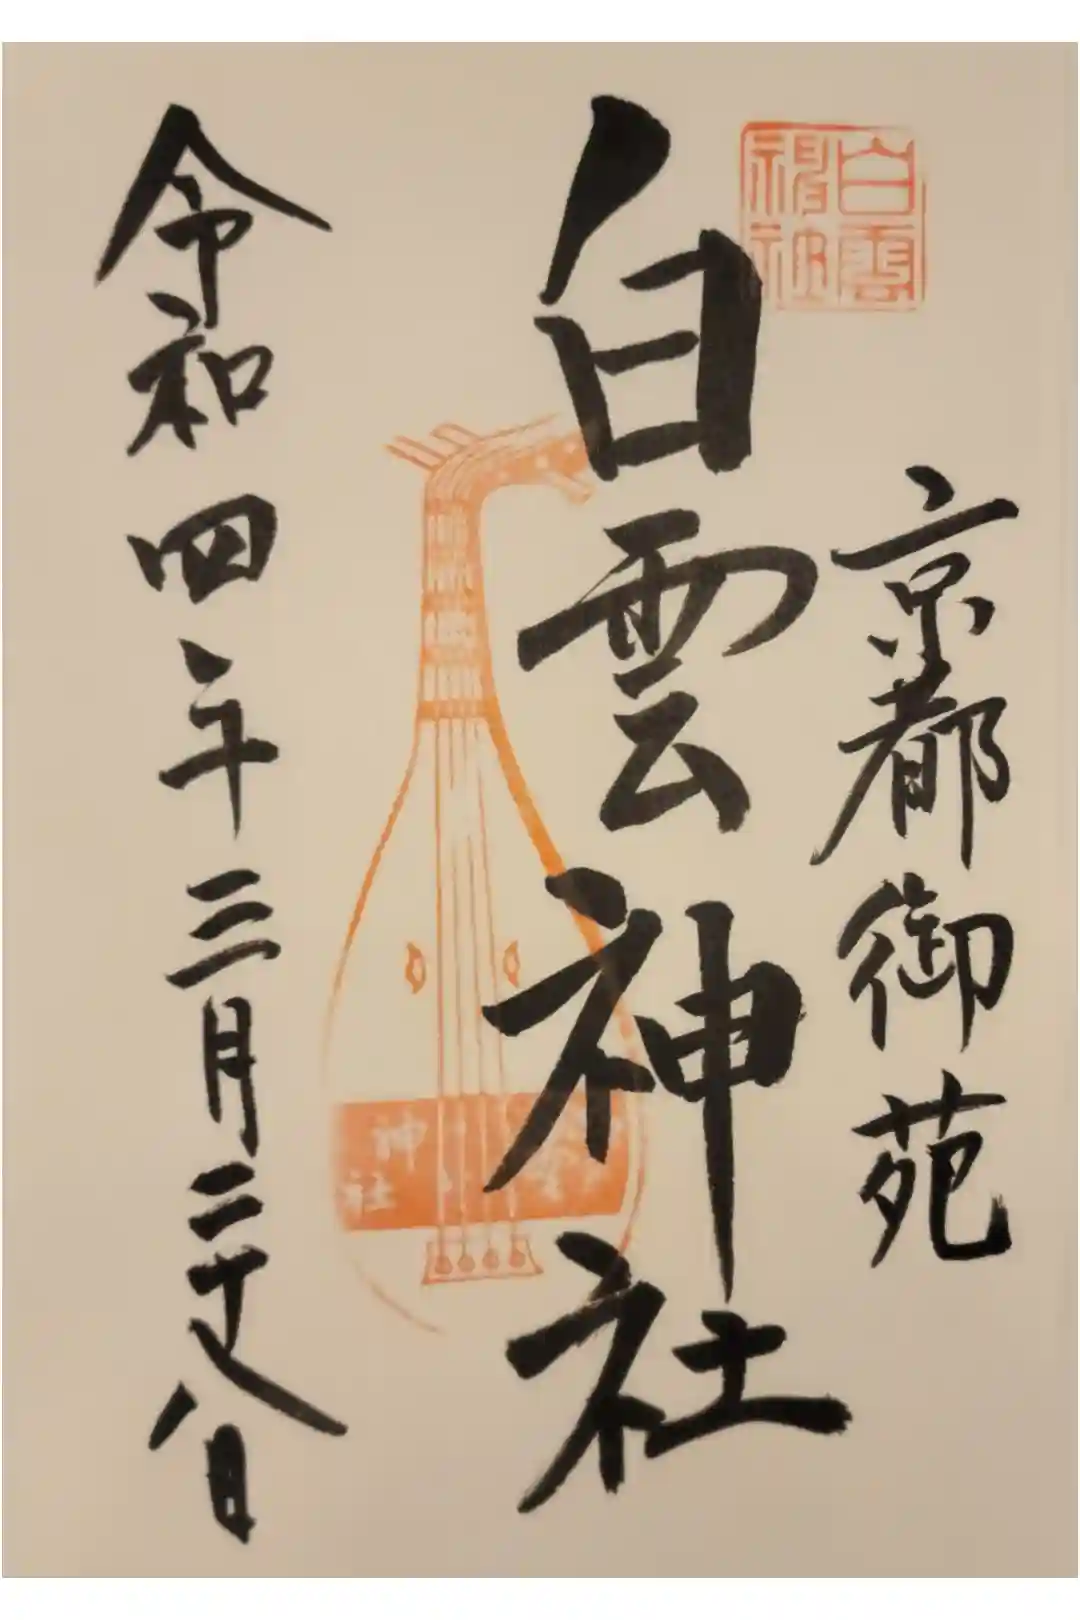 白雲
神社
京都御苑
白雲神社
神社
令和四年三月二十八日